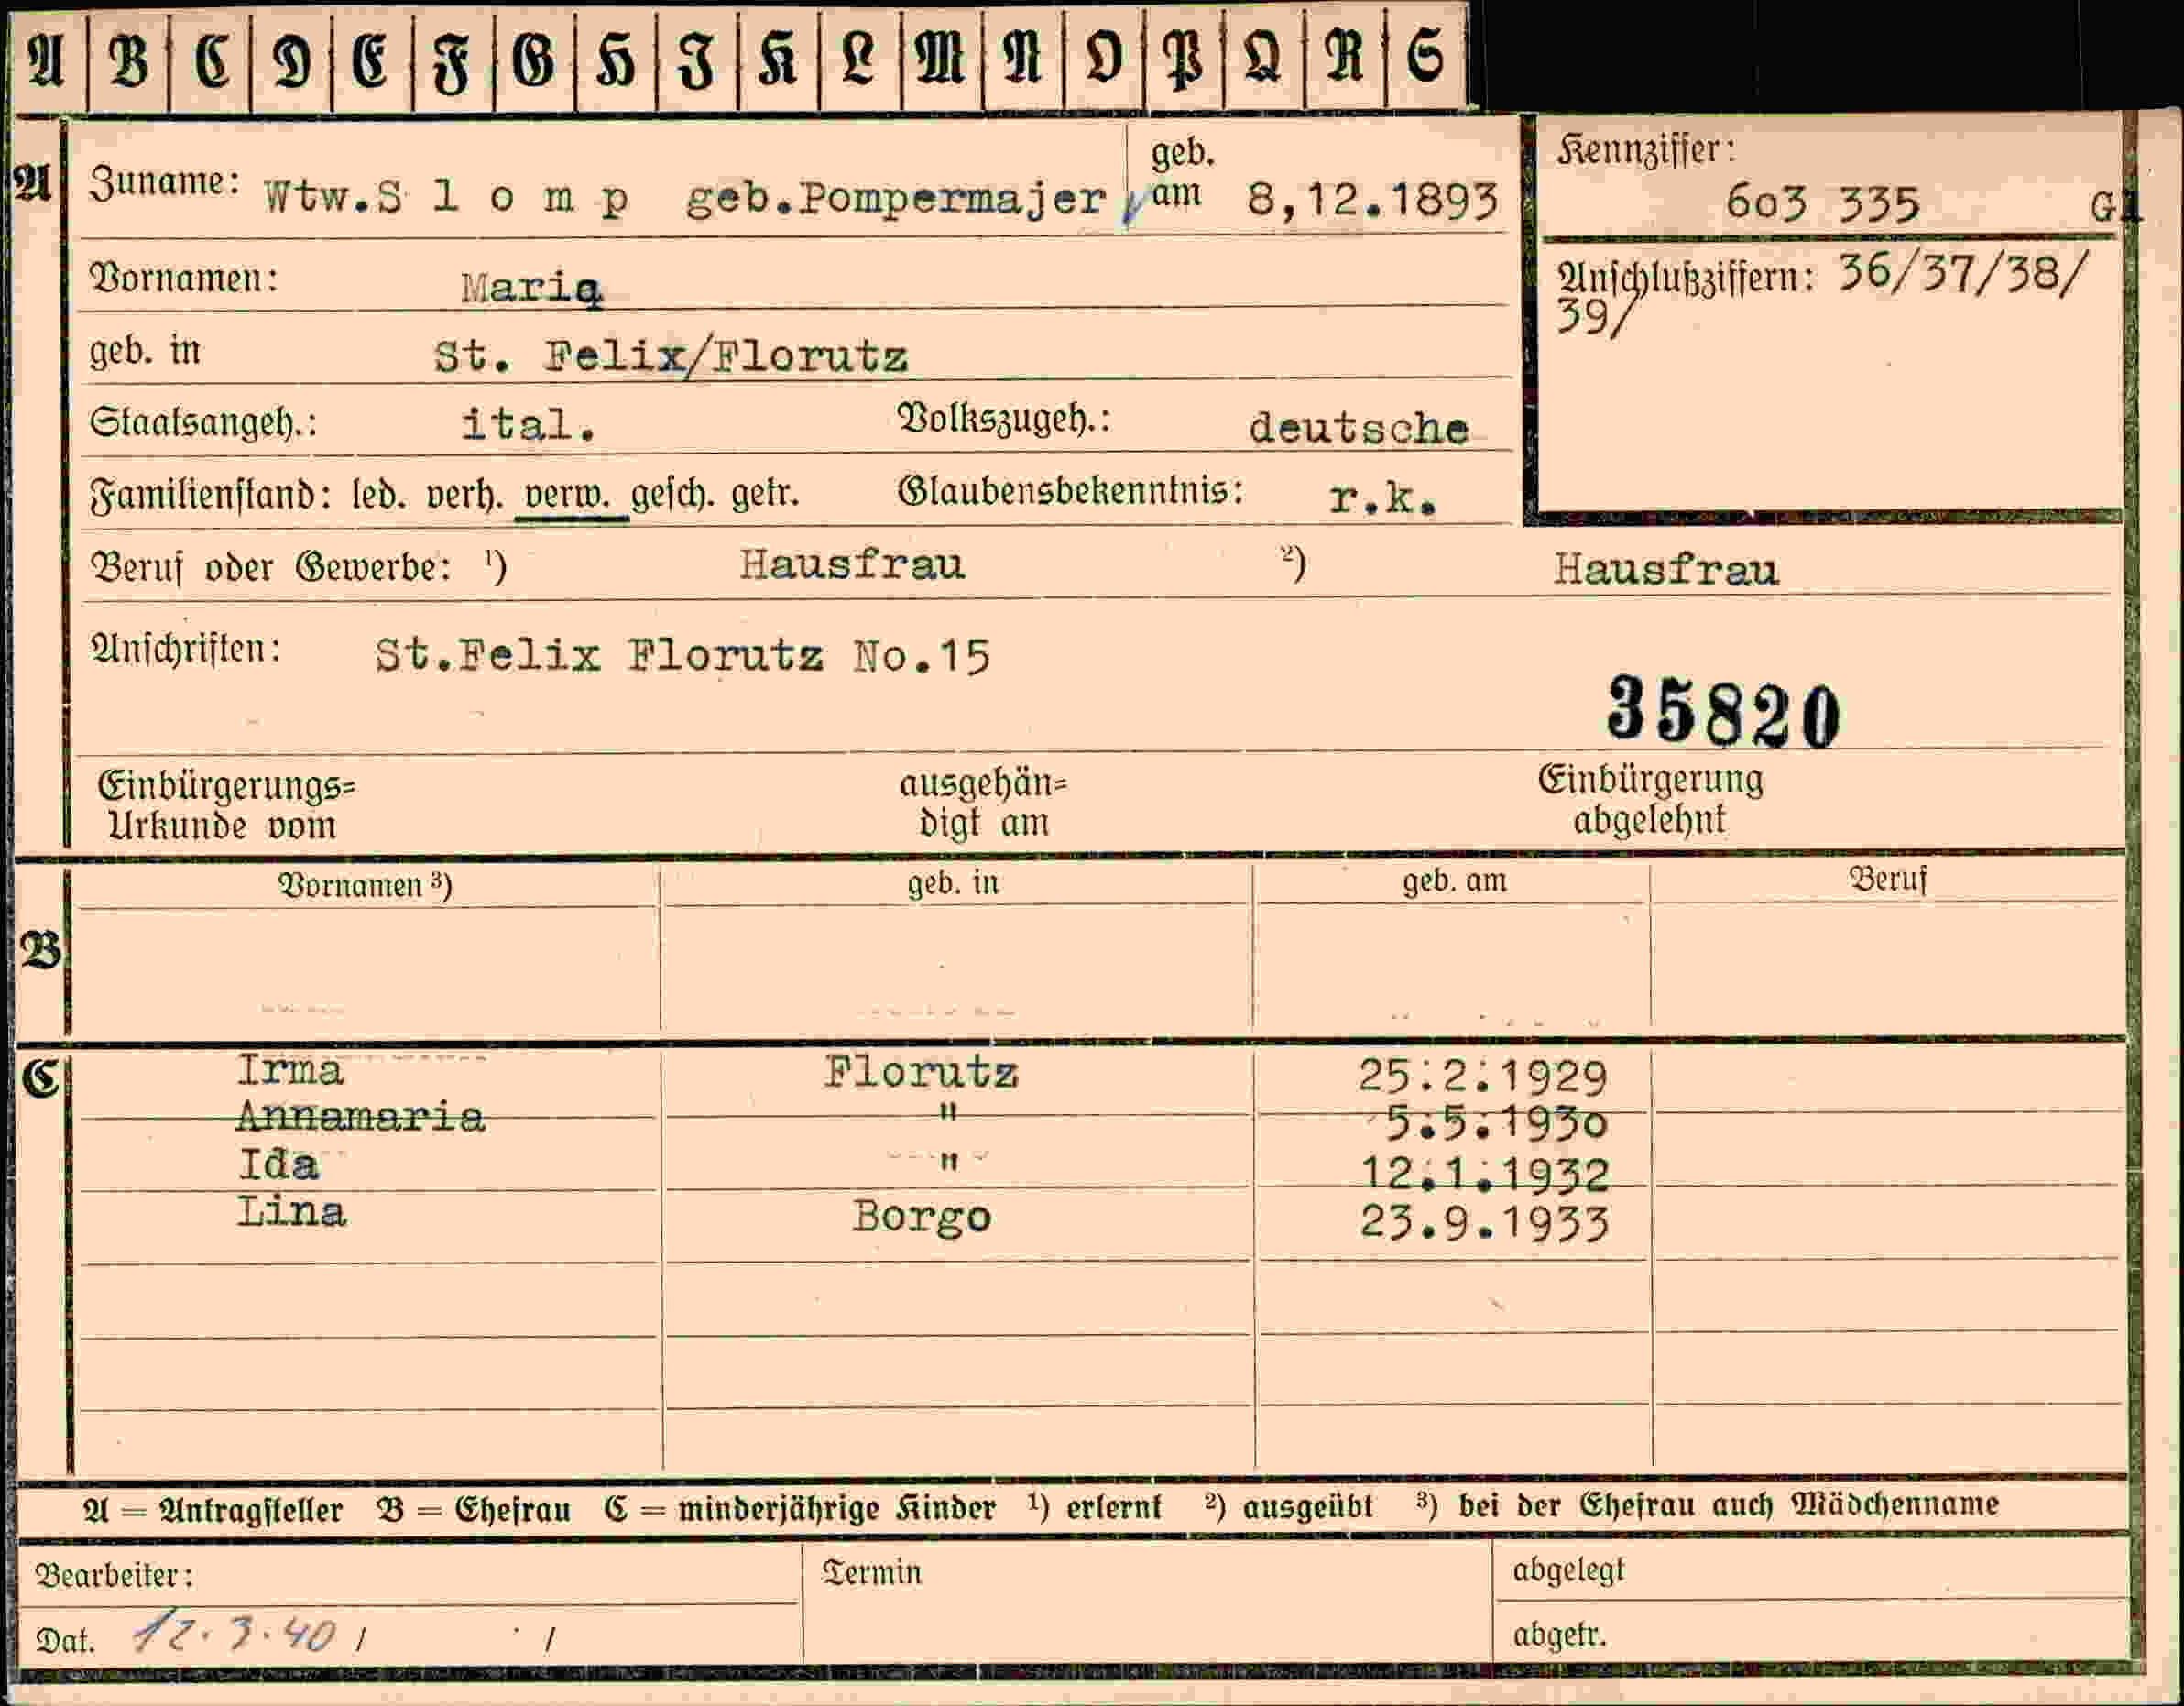 A B C D E F G H I K L M N O P Q R S
A Zuname: Wtw.S l o m p geb.Pompermajer geb. am 8,12.1893
Kennziffer:
603 335 G1
Vornamen: Maria
Anschlußziffern: 36/37/38/
39/
geb. in St. Felix/Florutz
Staatsangeh.: ital. Volkszugeh.: deutsche
Familienstand: led. verh. verw. gesch. getr. Glaubensbekenntnis: r.k.
Beruf oder Gewerbe: ¹) Hausfrau ²) Hausfrau
Anschriften: St.Felix Florutz No.15
35820
Einbürgerungs= ausgehän= Einbürgerung
Urkunde vom digt am abgelehnt
Vornamen ³) geb. in geb. am Beruf
B
C Irma Florutz 25.2.1929
Annamaria " 5.5.1930
Ida " 12.1.1932
Lina Borgo 23.9.1933
A = Antragsteller B = Ehefrau C = minderjährige Kinder ¹) erlernt ²) ausgeübt ³) bei der Ehefrau auch Mädchenname
Bearbeiter: Termin abgelegt
Dat. 12.3.40 / / abgetr.